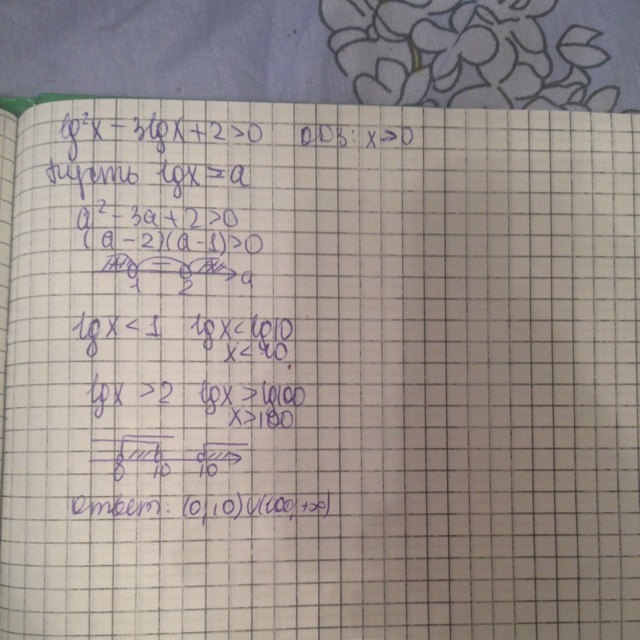 lg²x − 3lgx + 2 > 0 ОДЗ: x > 0
Пусть lgx = a
a² − 3a + 2 > 0
(a − 2)(a − 1) > 0
1 2 a
lgx < 1 lgx < lg10
x < 10
lgx > 2 lgx > lg100
x > 100
0 10
Ответ: (0, 10) ∪ (100, +∞)